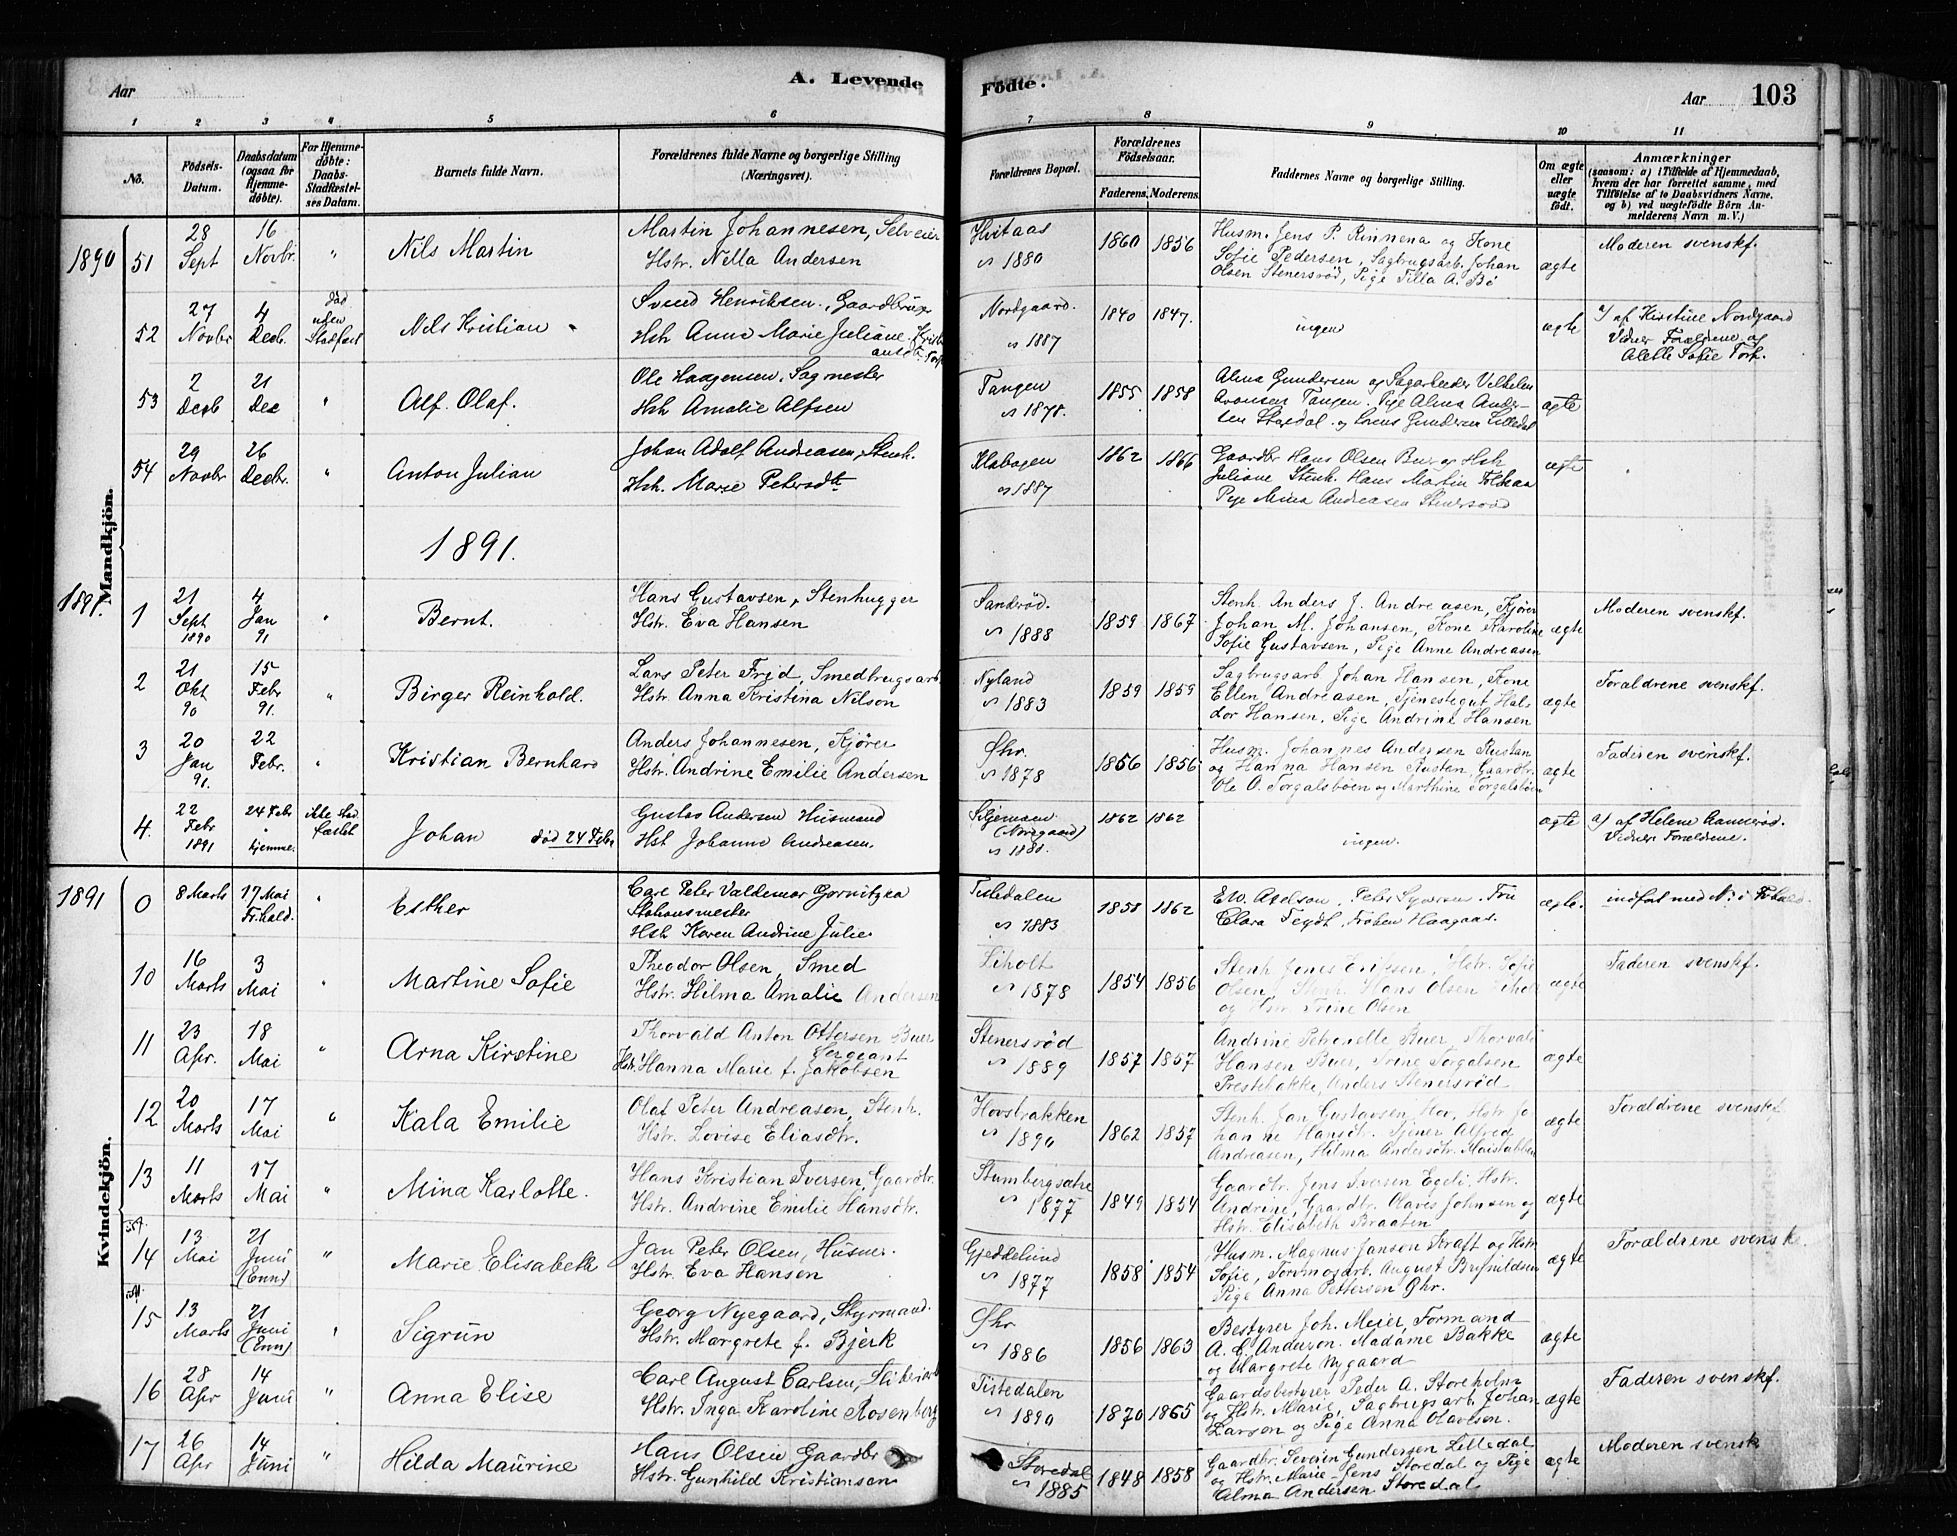 A. Levende
Aar
1 2 3 4 5 6
No.
Födsels-Datum.
Daabsdatum (ogsaa for Hjemmedøbte).
For Hjemmedøbte: Daabs-Stadfæstelses Datum.
Barnets fulde Navn.
Forældrenes fulde Navne og borgerlige Stilling
(Næringsvei).
Födte.
Aar 103
7 8 9 10 11
Forældrenes Bopæl.
Forældrenes Födselsaar.
Faderens. Moderens.
Faddernes Navne og borgerlige Stilling.
Om ægte eller uægte födt.
Anmærkninger
(saasom: a) i Tilfælde af Hjemmedaab,
hvem der har forrettet samme, med
Tilföielse af to Daabsvidners Navne,
og b) ved uægtefödte Börn Anmelderens Navn m. V.)
Mandkjön.
1890
51 28 Sept 16 Novbr. " Nils Martin
Martin Johannesen, Selveier
Hstr. Nilla Andersen
Hvitaas 1880 1860 1856
Husm. Jens P. Rinnena og Kone
Sofie Pedersen, Sagbrugsarb. Johan
Olsen Stenersrød, Pige Tilla A. Bø
ægte Moderen svenskf.
52 27 Novbr 4 Decb. død uden Stadfæst Nils Kristian
Svend Henriksen, Gaardbruger
Hst Anne Marie Juliane
Nordgaard 1887 1840 1847.
ingen
ægte a/ af Kirstine Nordgaard
Vidner Forældrene og
Alette Sofie Torp.
53 2 Decb 21 Dec " Alf. Olaf.
Ole Haagensen, Sagmester
Hst Amalie Alfsen
Tangen 1878. 1855 1858
Alma Gundersen og Sagarbeider Vilhelm
Tangen. Pige Alma Andersen
Storedal og Lorens Gundersen Lilledal
ægte
54 29 Novbr 26 Decbr. " Anton Julian
Johan Adolf Andreasen, Stenh.
Hst. Marie Petersdt.
1887 1862 1866
Gaardbr Hans Olsen Buer og Hst
Juliane Stenh. Hans Martin
Pige Mina Andreasen Stenersrød
ægte
1891.
1891.
1 21 Sept 1890 4 Jan 91 " Bernt.
Hans Gustavsen, Stenhugger
Hstr. Eva Hansen
Sanderød. 1888 1859 1867
Stenh. Anders J. Andreasen, Kjører
Johan M. Johansen, Kone Karoline
Sofie Gustavsen, Pige Anne Andreasen
ægte Moderen svenskf.
2 21 Okt 90 15 Febr 91. " Birger Reinhold.
Lars Peter Frid, Smedbrugsarb.
Hstr. Anna Kristina Nilson
Nyland 1883 1859 1859
Sagbrugsarb Johan Hansen, Kone
Ellen Andreasen, Tjenestegut Haldor
Hansen. Pige Andrine Hansen
ægte Forældrene svenskf.
3 20 Jan 91. 22 Febr. " Kristian Bernhard
Anders Johannesen, Kjører
Hstr. Andrine Emilie Andersen
Øhr 1878 1856 1856
Husm. Johannes Andersen Rusten
og Hanna Hansen Rusten, Gaardbr.
Ole O. Torgalsbøen og Marthine Torgalsbøen
ægte Faderen svenskf.
4. 22 Febr 1891 24 Febr hjemme. ikke Stadfæstet Johan død 24 Febr
Gustav Andersen Husmand
Hst Johanne Andreasen.
1888. 1862 1862
ingen.
ægte a) af Helene
Vidner Forældrene.
Kvindekjön.
1891
0 8 Marts 17 Mai Fr.hald. " Esther
Carl Peter Valdemar Gornitzka
Stationsmester
Hst Karen Andrine Julie
Tistedalen 1883 1858 1862
E.W. Axelson, Peter Syversen. Fru
Clara Feydt, Frøken Haagaas.
ægte. indført med N: i Frhald.
10 16 Marts 3 Mai " Martine Sofie
Theodor Olsen, Smed
Hstr. Hilma Amalie Andersen
Liholt 1878 1854 1856
Stenh. Jens Eriksen, Hstr. Sofie
Olsen, Stenh. Hans Olsen Liholt
og Hstr. Trine Olsen
ægte Faderen svenskf.
11 23 Apr. 18 Mai " Arna Kirstine
Thorvald Anton Ottersen Buer
Sergeant
Hstr. Hanna Marie f. Jakobsen
Stenersrød 1889 1857 1857
Andrine Petronelle Buer, Thorvald
Hansen Buer, Trine Torgalsen
Prestebakke, Anders Stenersrød
ægte
12 20 Marts 17 Mai " Kala Emilie
Olaf Peter Andreasen, Stenh.
Hstr. Lovise Eliasdtr.
Hovsbakken 1890 1862 1857
Stenh. Jan Gustavsen, Hov, Hstr. Johanne
Hansdtr. Tjener Alfred
Andreasen, Hilma Andersdtr.
ægte Forældrene svenskf
13 11 Marts 17 Mai " Mina Karlotte.
Hans Kristian Iversen, Gaardbr.
Hstr. Andrine Emilie Hansdtr.
1877 1849 1854
Gaardbr. Jens Iversen Egeli, Hstr.
Andrine, Gaardbr. Olaves Johnsen og
Hstr. Elisabeth Braaten
ægte
14 13 Mai 21 Juni (Enn) " Marie Elisabeth
Jan Peter Olsen, Husm.
Hstr. Eva Hansen
Gjeddelund 1877 1858 1854
Husm. Magnus Janson Kraft og Hstr
Sofie, Torvmosarb. August Brynildsen
Pige Anna Pettersen Øhr.
ægte Forældrene svenske.
15 13 Marts 21 Juni (Enn) " Sigrun
Georg Nyegaard, Styrmand.
Hstr. Margrete f. Bjerk
Øhr 1886 1856 1863
Bestyrer Joh. Meier, Formand
A. C. Anderson. Madame Bakke
og Margrete Nygaard
ægte
16 28 Apr 14 Juni " Anna Elise
Carl August Carlsen,
Hstr. Inga Karoline Rosenberg
Tistedalen 1890 1870 1865
Gaardsbestyrer Peder A. Storeholm
og Hstr. Marie, Sagbrugsarb. Johan
Larsen og Pige Anna Olavesen.
ægte Faderen svenskf.
17 26 Apr 14 Juni " Hilda Maurine
Hans Olsen Gaardbr
Hstr. Gunhild Kristiansen
Storedal 1885 1848 1858
Gaardbr. Severin Gundersen Lilledal
og Hstr. Marie - Jens Storedal og Pige
Alma Andersen Storedal
ægte Moderen svensk